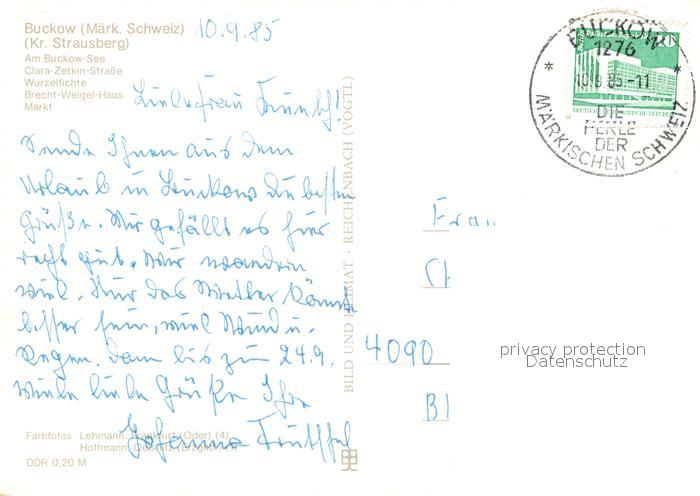 Buckow (Märk. Schweiz) 10.9.85
(Kr. Strausberg)
Am Buckow-See
Clara-Zetkin-Straße
Wurzelfichte
Brecht-Weigel-Haus
Markt
Liebe Frau
Sende Ihnen aus dem
Urlaub in Buckow die besten
Grüße. Mir gefällt es hier
recht gut. Wir wandern
viel. Nur das Wetter könnte
besser sein, viel Wind u.
Regen. bis zum 24.9.
viele liebe Grüße Ihre
Johanna
Farbfotos Lehmann, Frankfurt (Oder) (4)
Hoffmann, Oelsnitz (Erzgeb.)
DDR 0,20 M
BILD UND HEIMAT · REICHENBACH (VOGTL)
BUCKOW
1276
10.9.85-11
DIE
PERLE
DER
MÄRKISCHEN SCHWEIZ
Frau
4090
privacy protection
Datenschutz